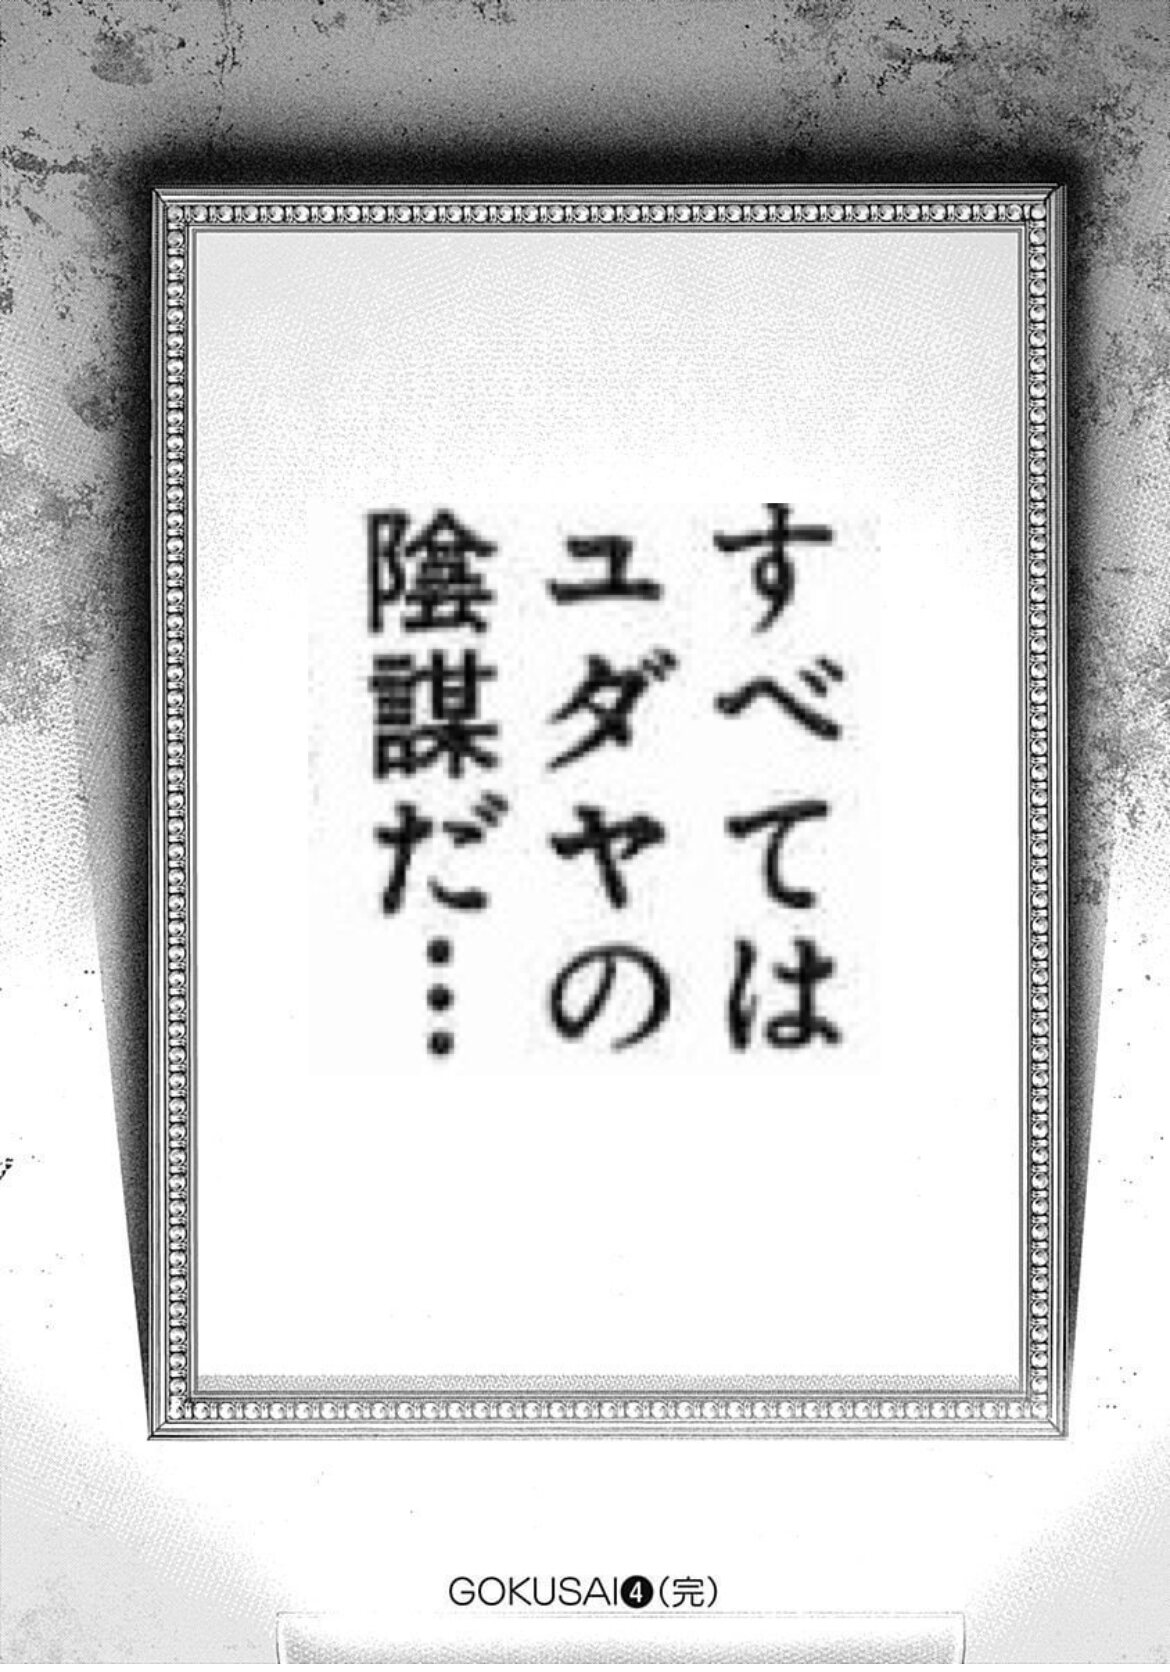 すべては
ユダヤの
陰謀だ…
GOKUSAI❹(完)